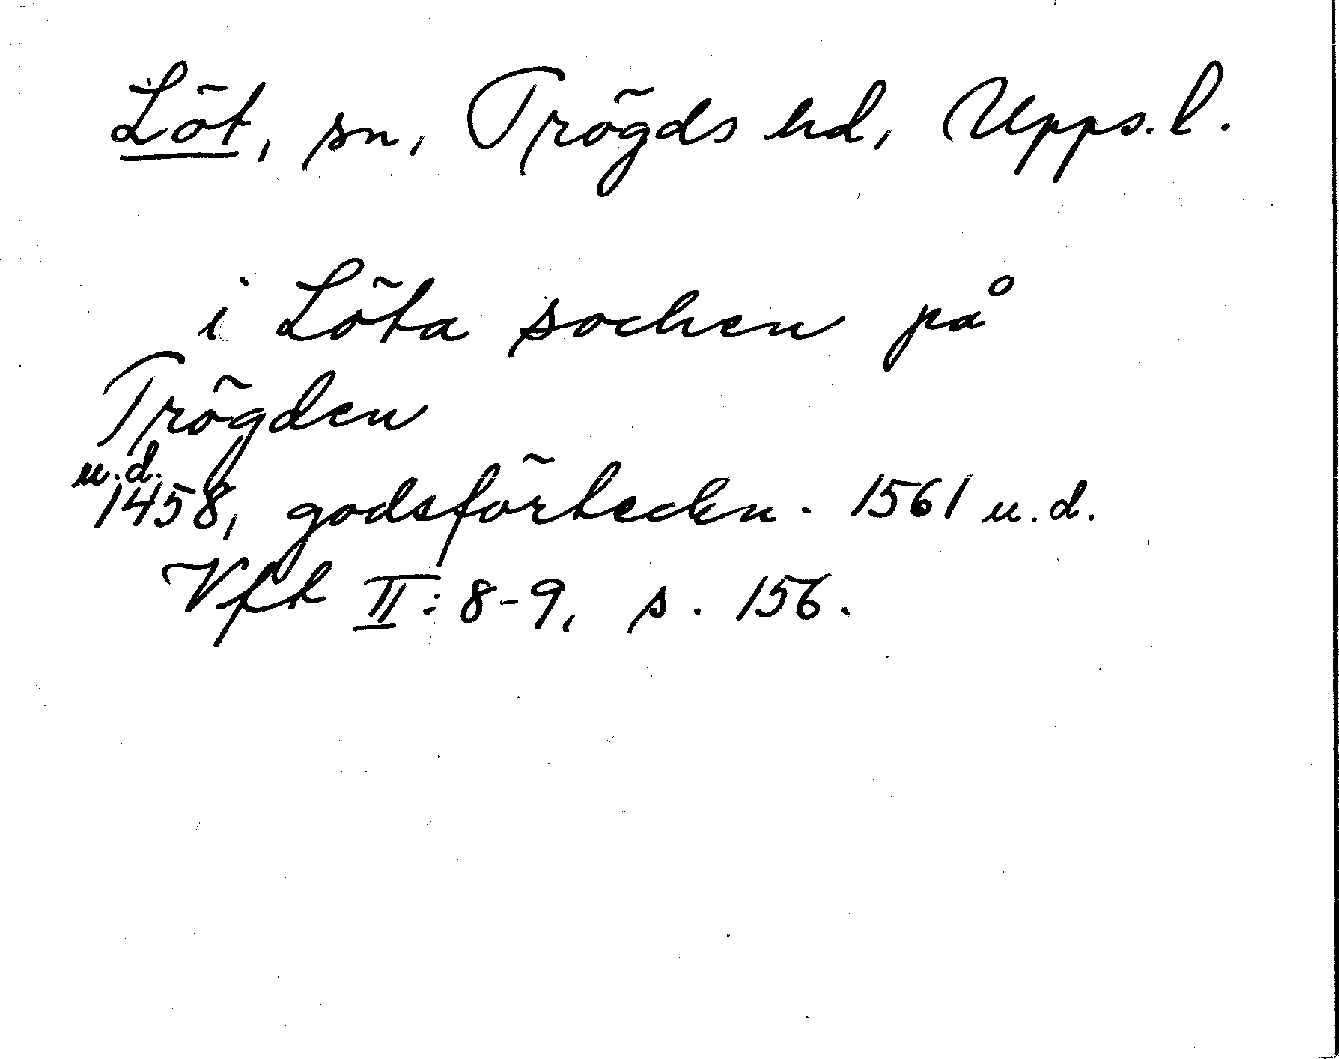 Löt, sn, Trögds hd, Upps. l.
i Löta sochen på
Trögden
u.d.
1458, godsförteckn. 1561 u.d.
Vfk II: 8-9, s. 156.